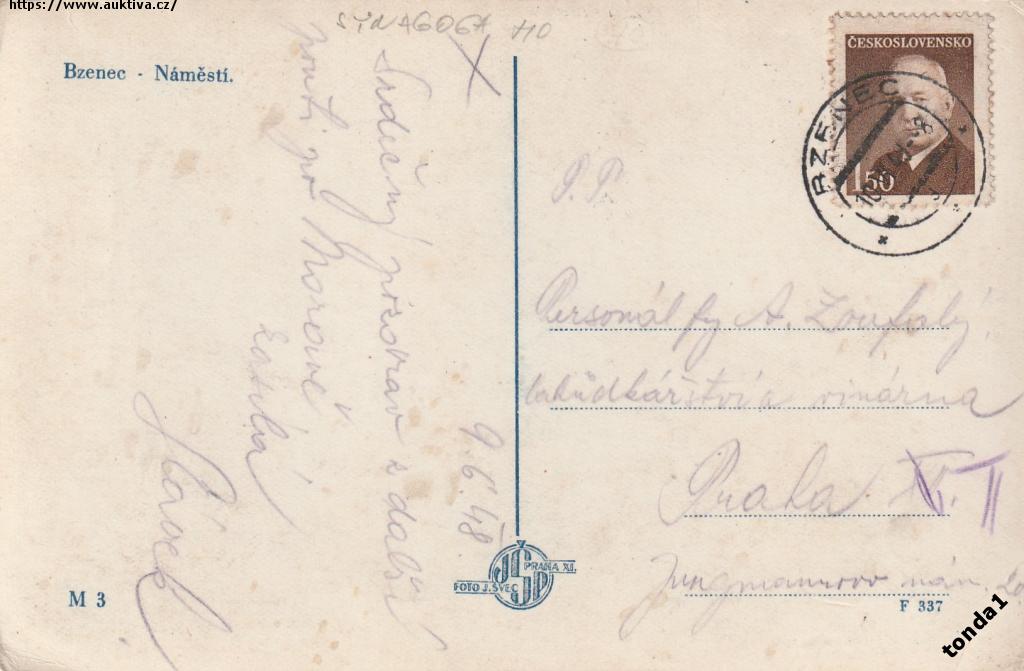 https://www.auktiva.cz/
SYNAGOGA
Bzenec - Náměstí.
9.6.48.
Srdečný pozdrav z další
pouti po Moravě
zasílá
ČESKOSLOVENSKO
1.50
BZENEC
P. T.
Personál fy A. Zoufalý,
lahůdkářství a vinárna
Praha II
Jungmannovo nám.
M 3
JŠP
PRAHA XI.
FOTO J. ŠVEC
F 337
tonda1